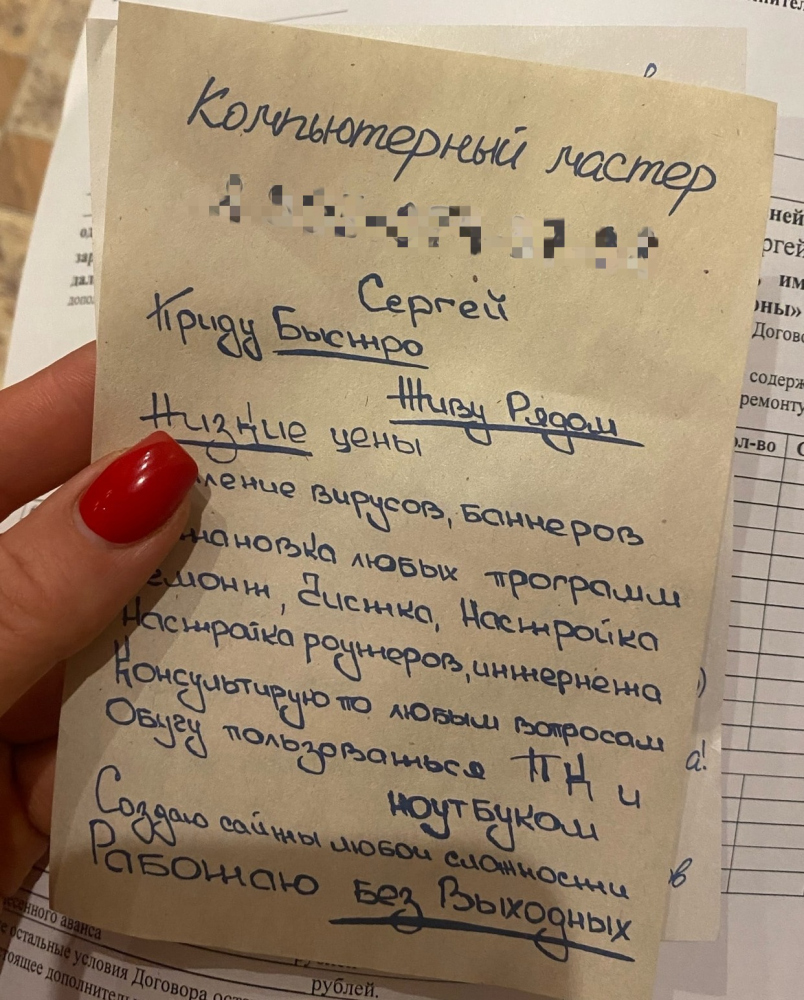 Компьютерный мастер
Сергей
Приду Быстро
Живу Рядом
Низкие цены
ление вирусов, баннеров
тановка любых программ
емонт, Чистка, Настройка
Настройка роутеров, интернета
Консультирую по любым вопросам
Обучу пользоваться ПК и
ноутбуком
Создаю сайты любой сложности
Работаю Без Выходных
ней
ргей
им
оны»
Догово
содерж
ремонту
ол-во
а!
в
сенного аванса
е остальные условия Договора ост
стоящее дополнитель
рублей.